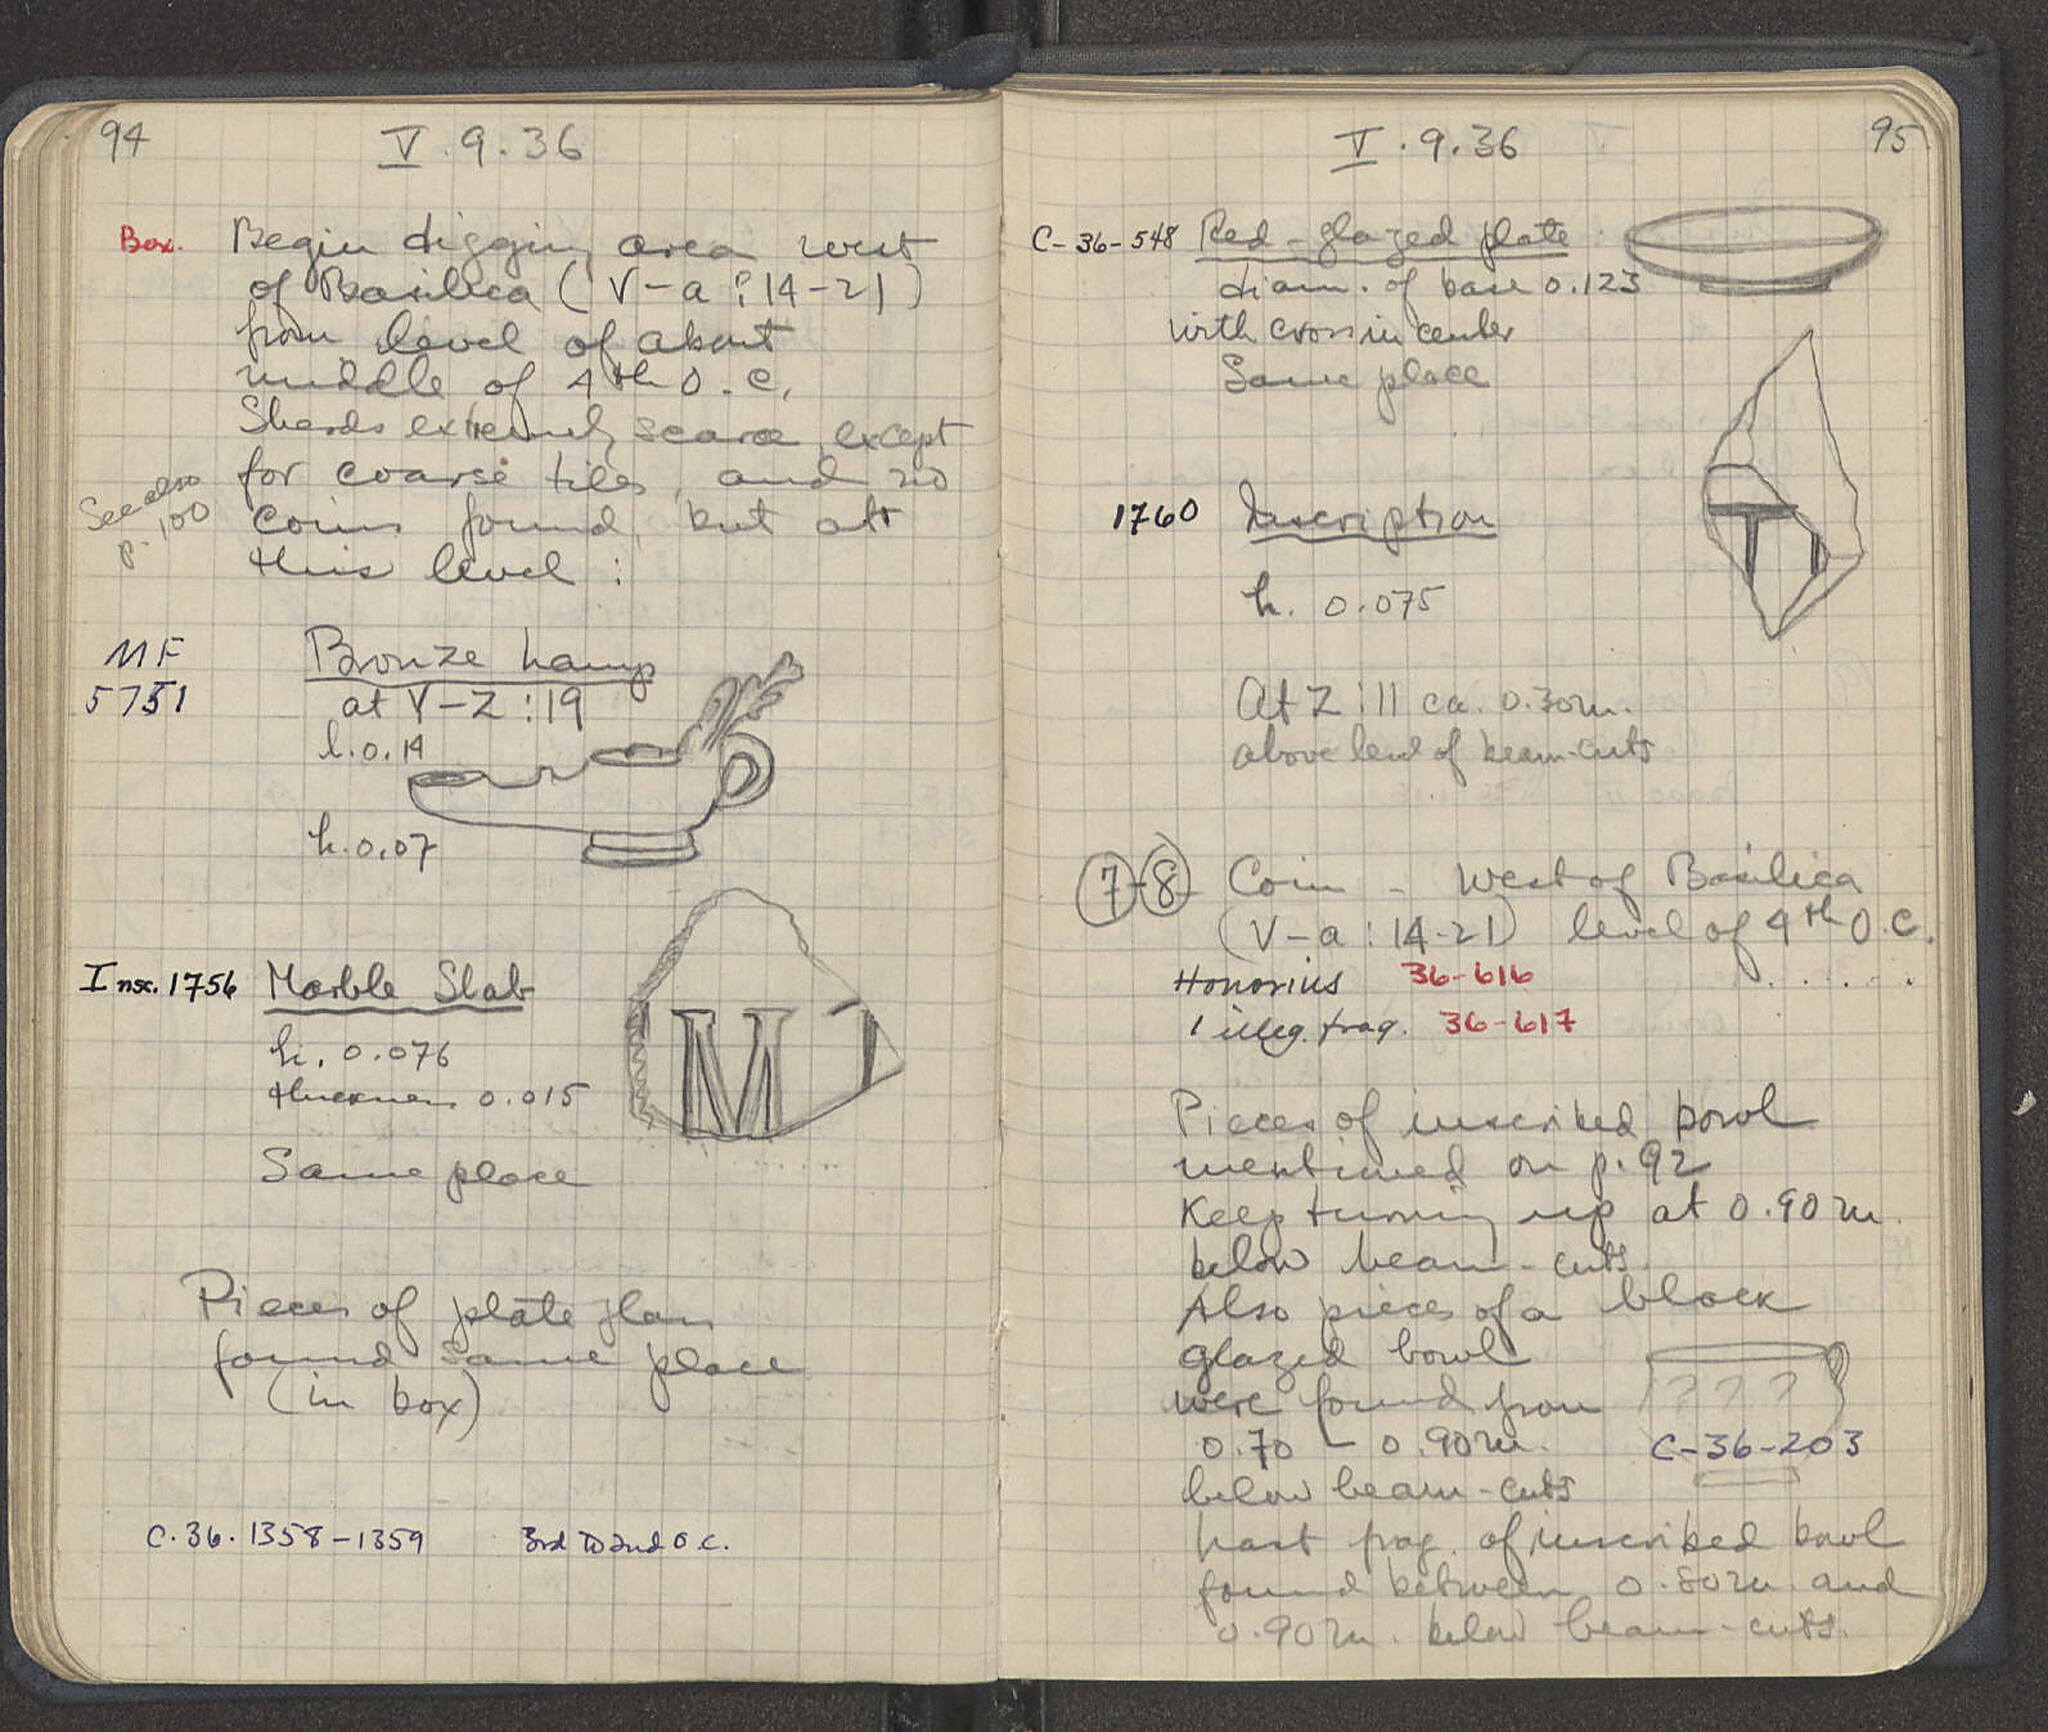 94
V . 9 . 36
Box. Begin digging area west
of Basilica ( V - a : 14 - 21 )
from level of about
middle of 4th O. C.
Sherds extremely scarce, except
for coarse tiles, and no
coins found, but at
this level :
See also
p. 100
MF
5751
Bronze Lamp
at V - Z : 19
l. 0.14
h. 0.07
Insc. 1756 Marble Slab
h. 0.076
thickness 0.015
Same place
M
Pieces of plate glass
found same place
(in box)
C. 36. 1358 - 1359 3rd to 2nd O. C.
V . 9 . 36
95
C - 36 - 548 Red - glazed plate
diam. of base 0.123
with cross in center
Same place
1760 Inscription
h. 0.075
At Z : 11 ca. 0.30 m.
above level of beam-cuts
7 - 8 Coin - West of Basilica
(V - a : 14 - 21) level of 4th O. C.
Honorius 36-616
1 illeg. frag. 36-617
Pieces of inscribed bowl
mentioned on p. 92
Keep turning up at 0.90 m.
below beam - cuts.
Also pieces of a black
glazed bowl
were found from
0.70 - 0.90 m.
below beam - cuts
? ? ?
C - 36 - 203
Last frag. of inscribed bowl
found between 0.80 m and
0.90 m. below beam - cuts.